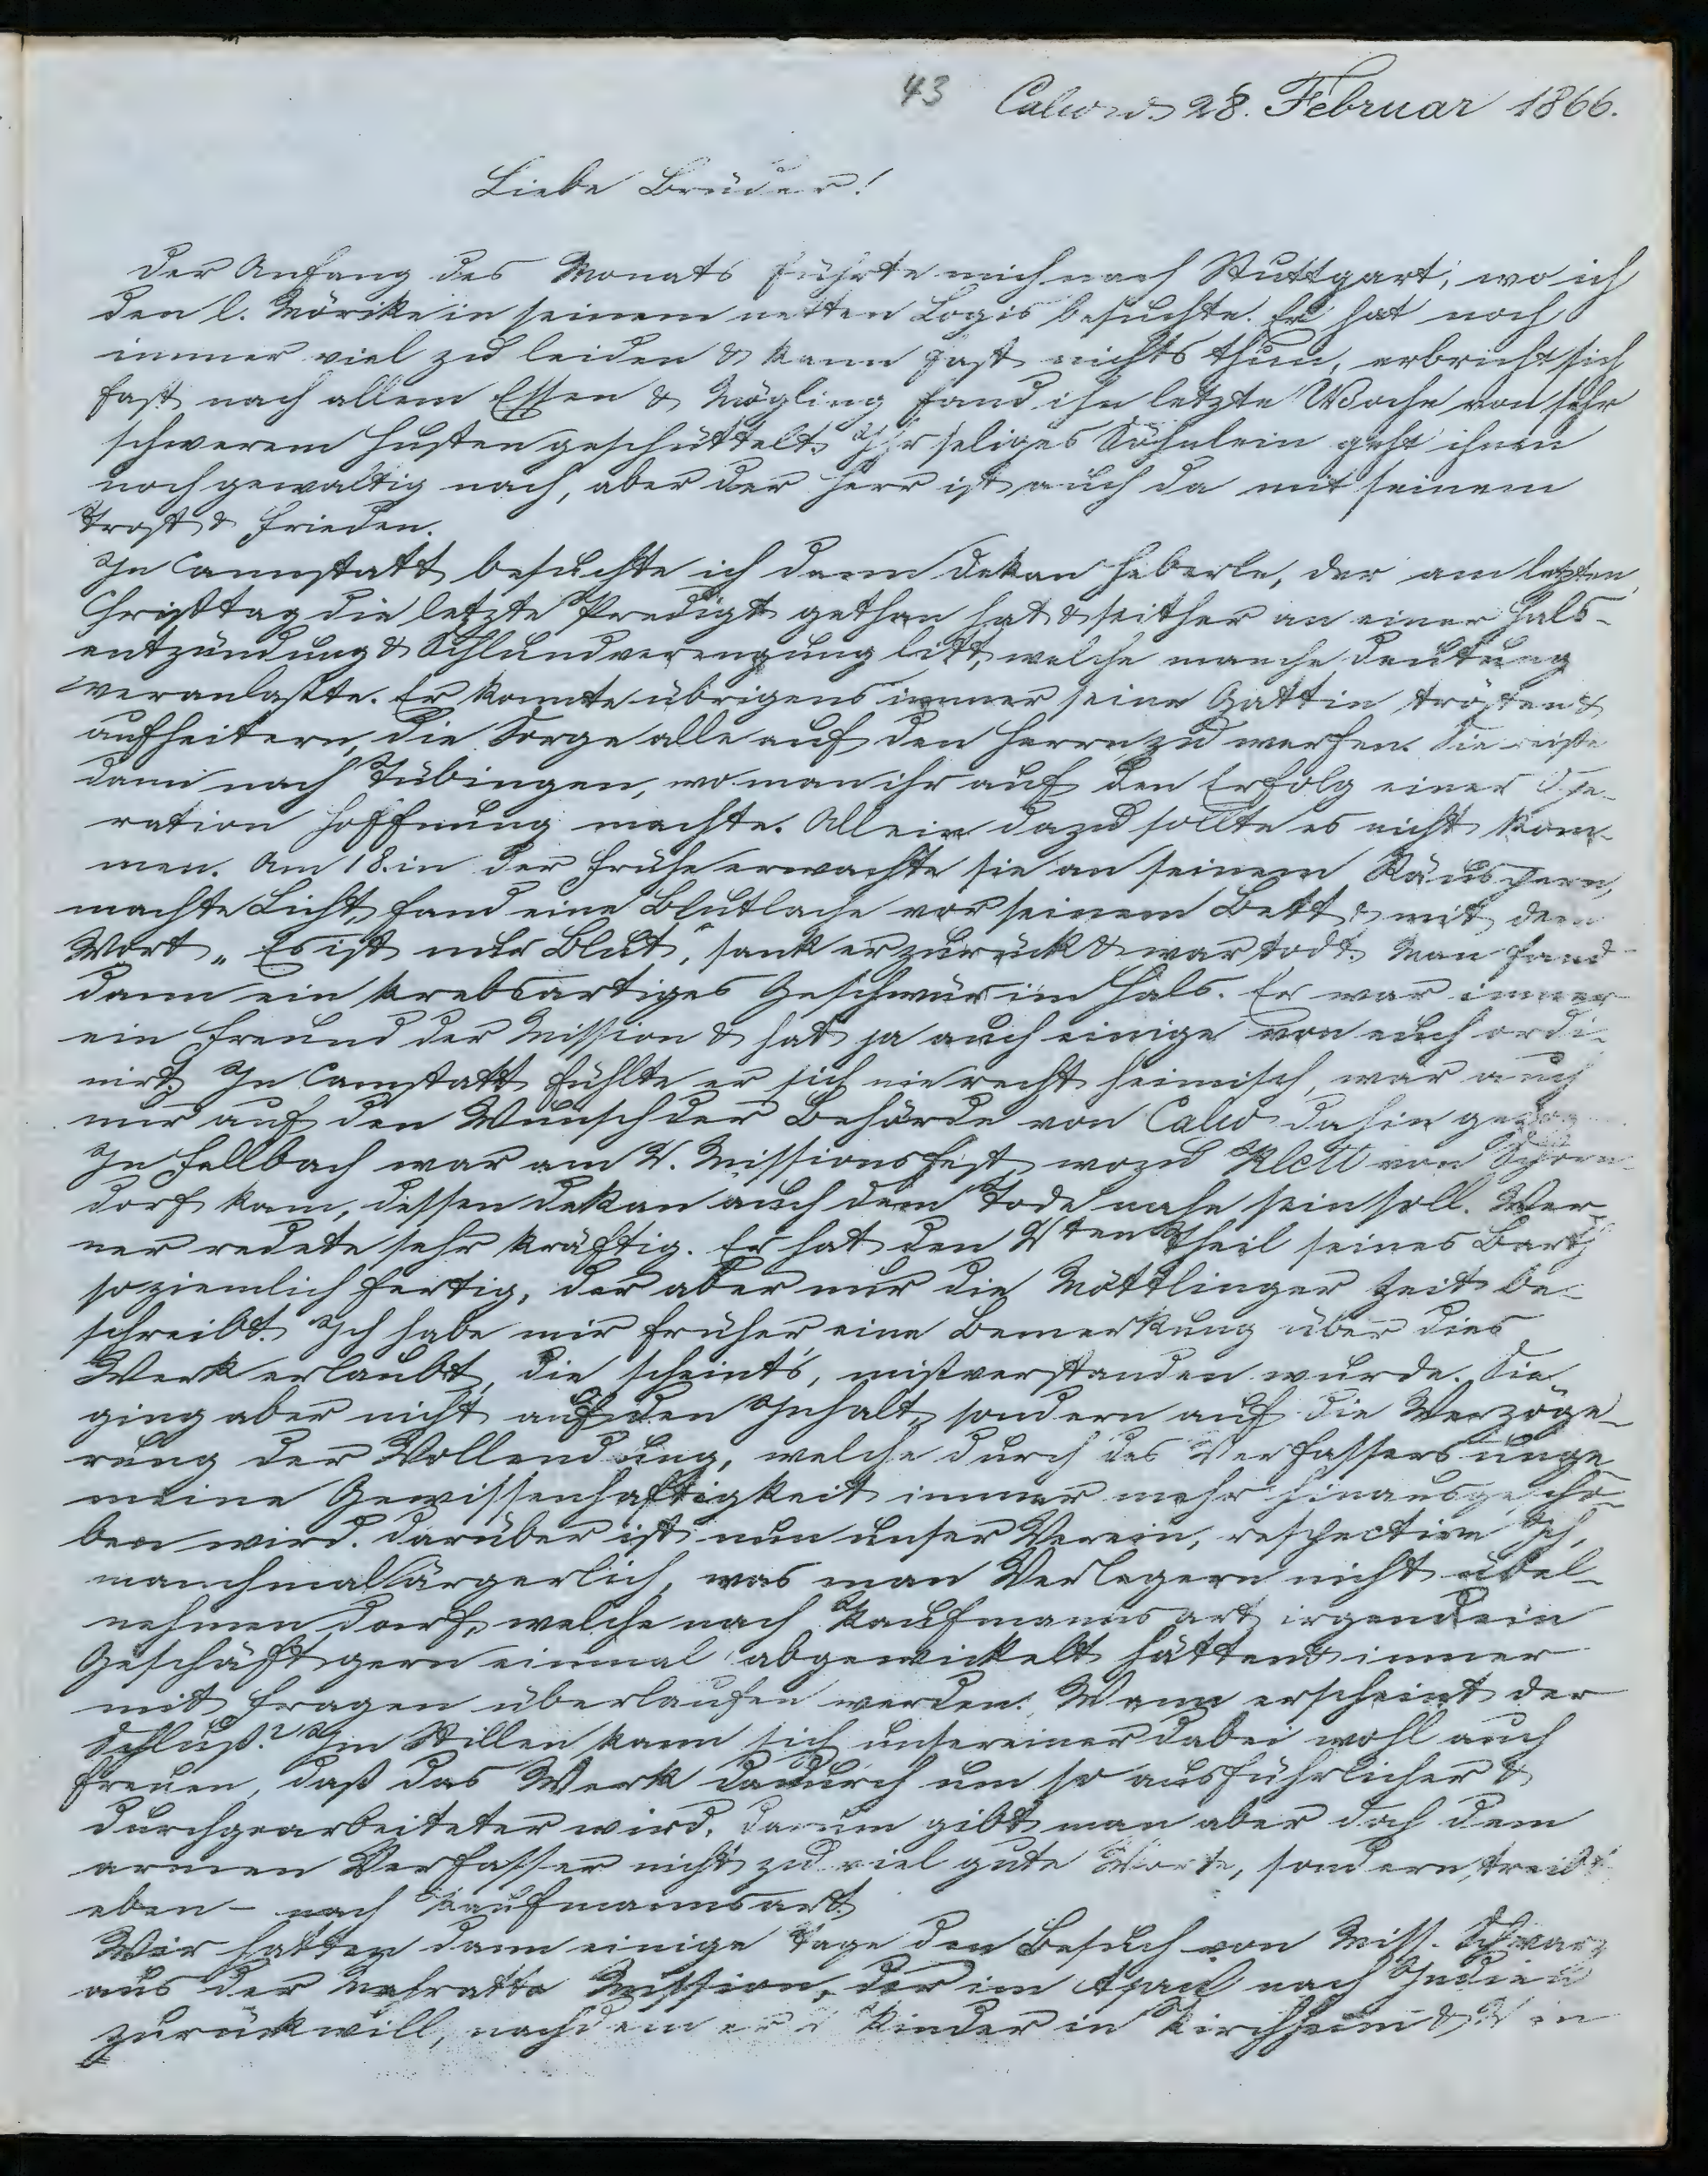 43 Calw d. 28. Februar 1866.
Liebe Brüder!
Der Anfang des Monats führte mich nach Stuttgart, wo ich
den l. Mörike in seinem netten Logis besuchte. Er hat noch
immer viel zu leiden & kann fast nichts thun, erbricht sich
fast nach allem Essen & Mögling fand ihn letzte Woche von sehr
schwerem Husten geschüttelt. Ihr seliges Söhnlein geht ihnen
noch gewaltig nach, aber der Herr ist auch da mit seinem
Trost & Frieden.
In Cannstatt besuchte ich dann Dekan Heberle, der am letzten
Christtag die letzte Predigt gethan hat & seither an einer Hals-
entzündung & Schlundverengung litt, welche manche Deutung
veranlaßte. Er konnte übrigens immer seine Gattin trösten &
aufheitern, die Sorge alle auf den Herrn zu werfen. Sie reiste
dann nach Tübingen, wo man ihr auf den Erfolg einer Ope-
ration Hoffnung machte. Allein dazu sollte es nicht kom-
men. Am 18. in der Frühe erwachte sie an seinem Räuspern,
machte Licht, fand eine Blutlache vor seinem Bett & mit dem
Wort „Es ist nur Blut", sank er zurück & war todt. Man fand
dann ein krebsartiges Geschwür im Hals. Er war immer
ein Freund der Mission & hat ja auch einige von euch ordi-
nirt. In Canstatt fühlte er sich nie recht heimisch, war auch
nur auf den Wunsch der Behörde von Calw dahin
In Fellbach war am 2. Missionsfest, wozu Klett von Schorn-
dorf kam, dessen Dekan auch dem Tode nahe sein soll. Wer-
ner redete sehr kräftig. Er hat den 2ten Theil seines Barth
so ziemlich fertig, der aber nur die Möttlinger Zeit be-
schreibt. Ich habe mir früher eine Bemerkung über dies
Werk erlaubt, die scheint's, mißverstanden wurde. Sie
ging aber nicht auf den Inhalt, sondern auf die Verzöge-
rung der Vollendung, welche durch des Verfassers unge-
meine Gewissenhaftigkeit immer mehr hinausgescho-
ben wird. Darüber ist nun unser Verein, respective Ich,
manchmal ärgerlich, was man Verlegern nicht übel-
nehmen darf, welche nach Kaufmannsart irgend ein
Geschäft gern einmal abgewickelt hätten & immer
mit Fragen überlaufen werden: Wann erscheint der
Schluß? Im Stillen kann sich unsereiner dabei wohl auch
freuen, daß das Werk dadurch um so ausführlicher &
durchgearbeiteter wird. Darum gibt man aber doch dem
armen Verfasser nicht zu viel gute Worte, sondern treibt
eben - nach Kaufmannsart.
Wir hatten dann einige Tage den Besuch von Miss. Schwarz
aus der Mahratta Mission, der im April nach Indien
zurück will, nachdem er Kinder in Kirchheim & 2 in